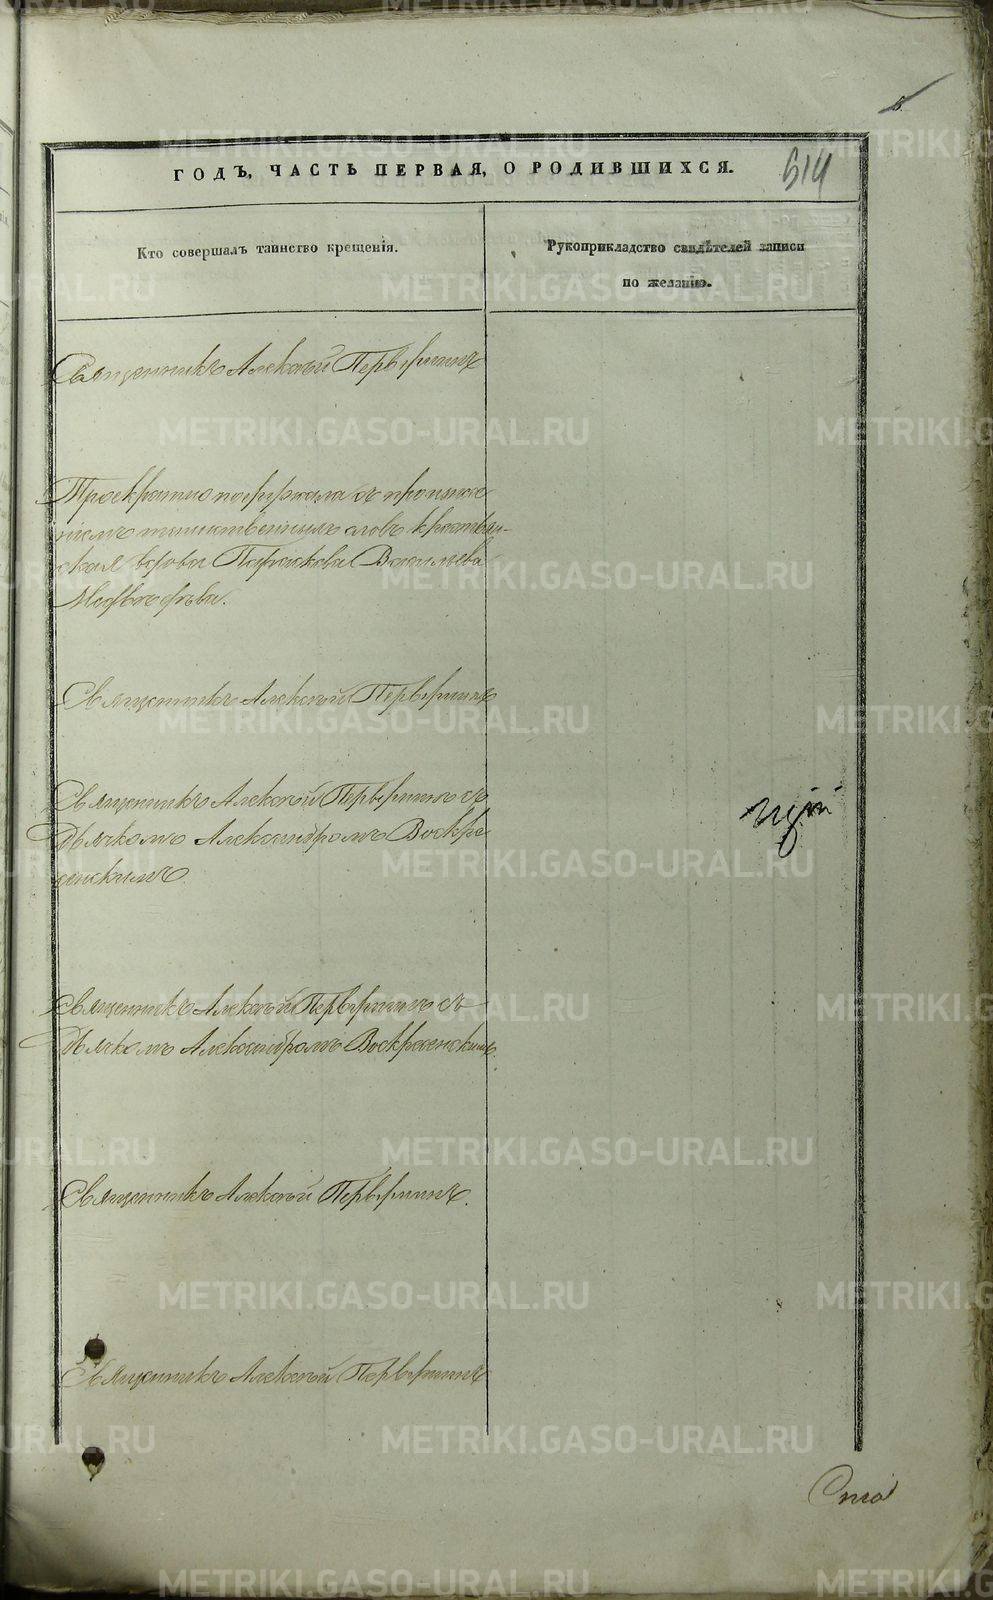 614
ГОДЪ, ЧАСТЬ ПЕРВАЯ, О РОДИВШИХСЯ.
Кто совершалъ таинство крещенія.
Рукоприкладство свидѣтелей записи
по желанію.
Священникъ Алексѣй Первушинъ
Троекратно погружала съ произнесе
ніемъ таинственныхъ словъ крестьян-
ская вдова Параскева Васильева
Священникъ Алексѣй Первушинъ
Священникъ Алексѣй Первушинъ съ
Дьячкомъ Александромъ Воскре
сенскимъ
Священникъ Алексѣй Первушинъ съ
Дьячкомъ Александромъ Воскресенскимъ.
Священникъ Алексѣй Первушинъ.
Священникъ Алексѣй Первушинъ
METRIKI.GASO-URAL.RU